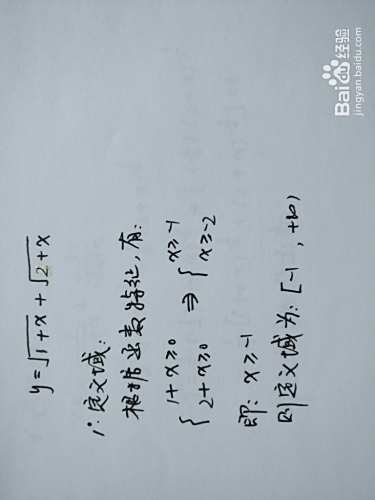 y=√1+x+√2+x
1°定义域:
根据函数特征,有:
{1+x≥0 ⇒ {x≥-1
2+x≥0 x≥-2
即: x≥-1
则定义域为: [-1 , +∞)
Bai du 经验
jingyan.baidu.com